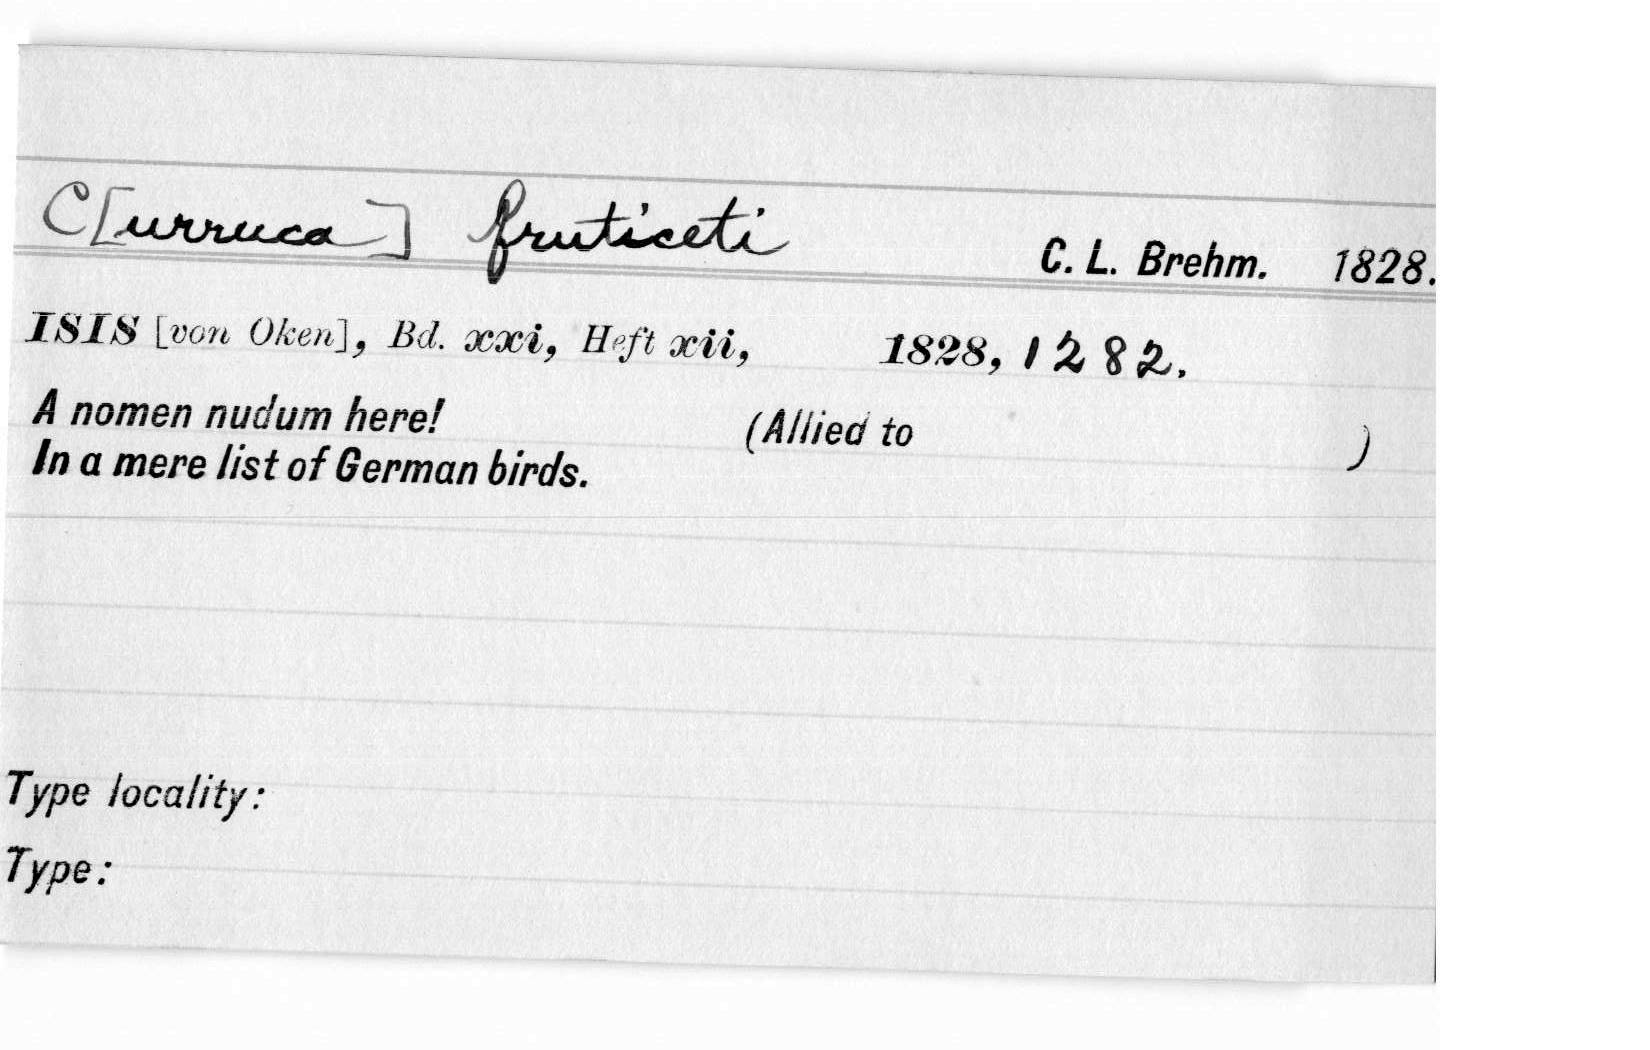 C[urruca] fruticeti C. L. Brehm. 1828.
ISIS [von Oken], Bd. xxi, Heft xii, 1828, 1282.
A nomen nudum here! (Allied to )
In a mere list of German birds.
Type locality:
Type: